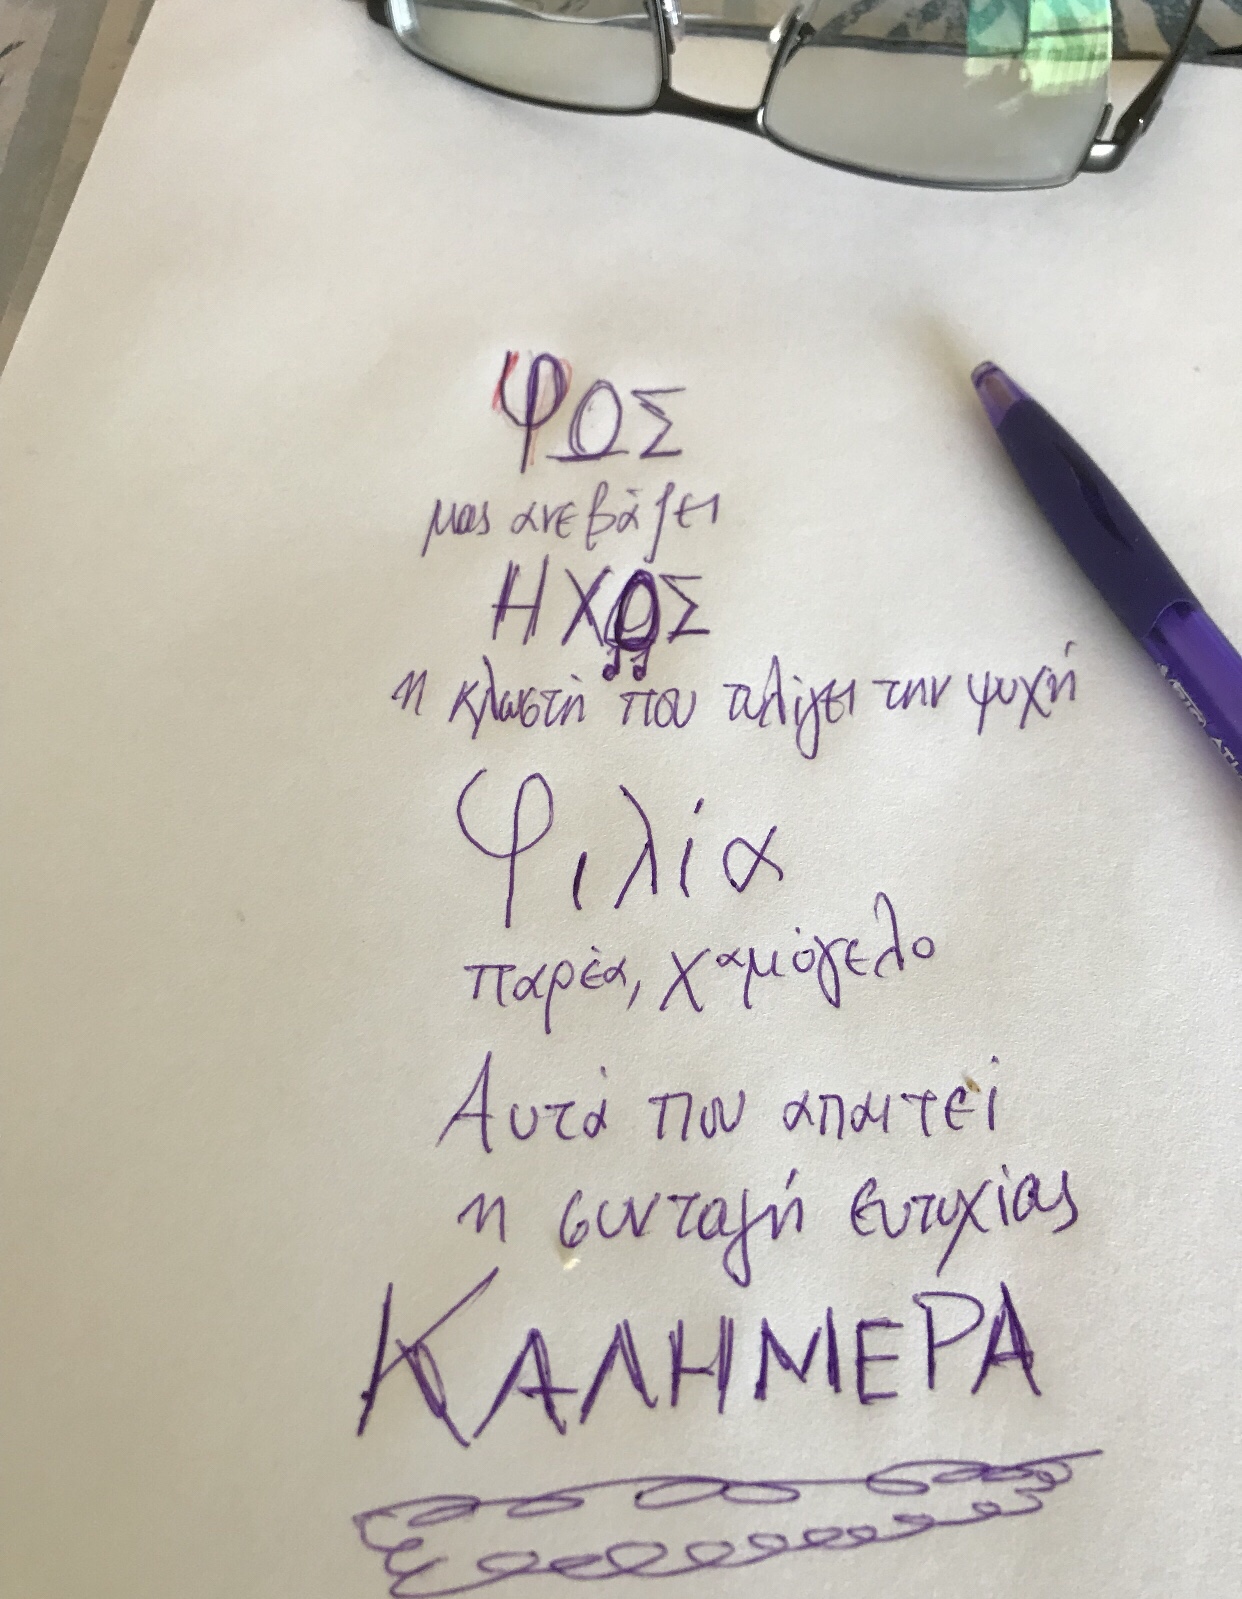 ΦΩΣ
μας ανεβάζει
ΗΧΟΣ
η κλωστή που τυλίγει την ψυχή
Φιλία
παρέα, χαμόγελο
Αυτά που απαιτεί
η συνταγή ευτυχίας
ΚΑΛΗΜΕΡΑ